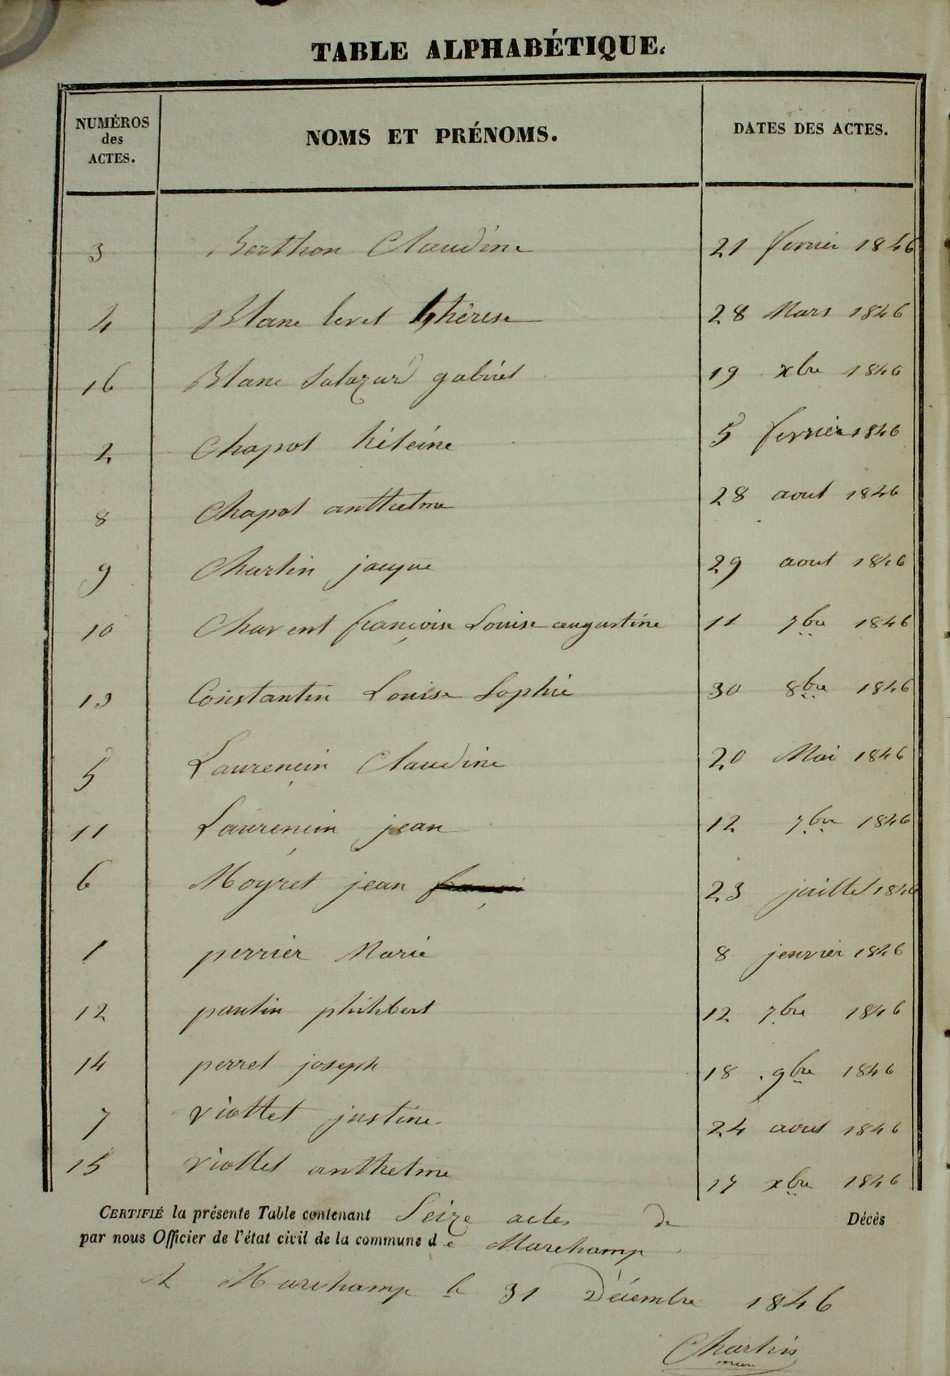 TABLE ALPHABÉTIQUE.
NUMÉROS des ACTES.
NOMS ET PRÉNOMS.
DATES DES ACTES.
3 Berthon Claudine 21 fevrier 1846
4 Blanc levet thérese 28 Mars 1846
16 Blanc Salazard gabriel 19 xbre 1846
2 Chapot 5 fevrier 1846
8 Chapot anthelme 28 aout 1846
9 Charlin jacque 29 aout 1846
10 Charvent françoise Louise augustine 11 7bre 1846
13 Constantin Louise Sophie 30 8bre 1846
5 Laurençin Claudine 20 Mai 1846
11 Laurençin jean 12 7bre 1846
6 Moyret jean 23 juillet 1846
1 perrier Marie 8 jenvier 1846
12 pantin philibert 12 7bre 1846
14 perret joseph 18 9bre 1846
7 viottet justine 24 aout 1846
15 viottet anthelme 17 xbre 1846
CERTIFIÉ la présente Table contenant Seize actes de Décès
par nous Officier de l'état civil de la commune de Marchamp
A Marchamp le 31 Décembre 1846
Charlin
maire